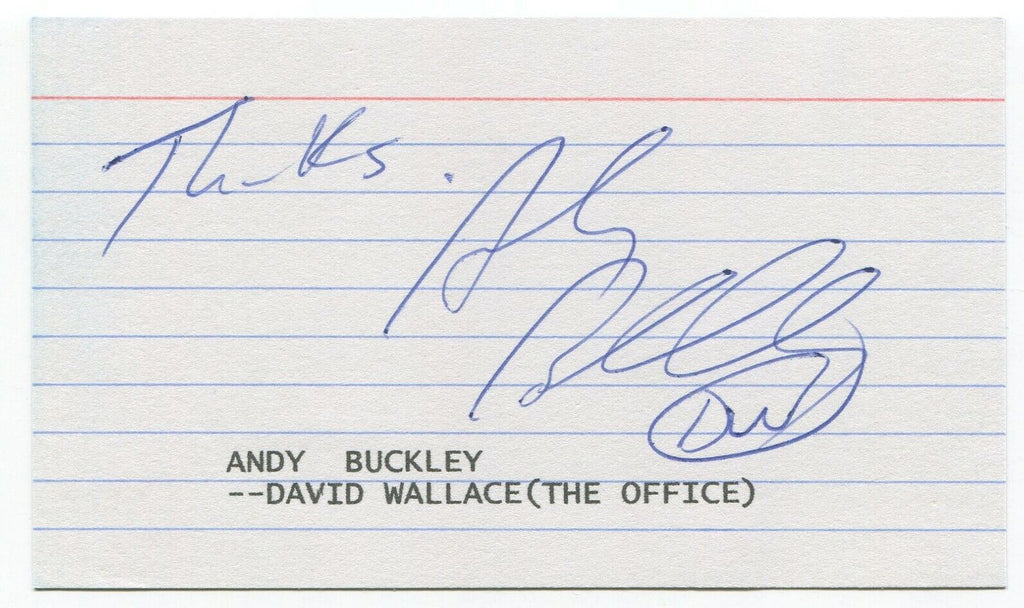 Thanks.
Andy
Buckley
DW
ANDY BUCKLEY
--DAVID WALLACE(THE OFFICE)